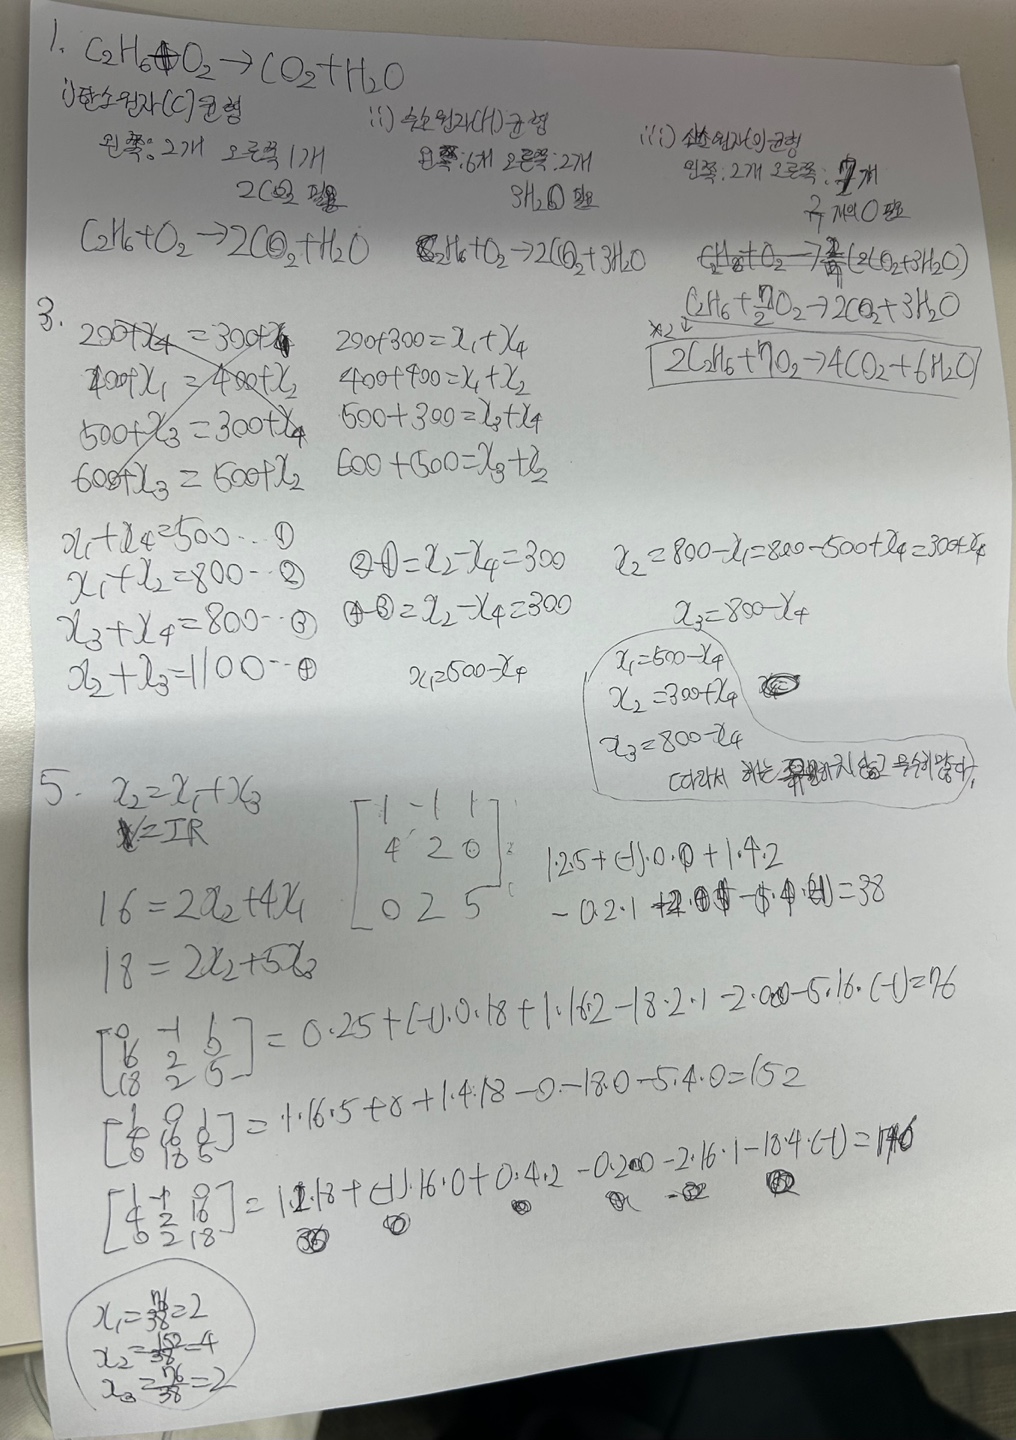 1. C2H6+O2→CO2+H2O
i) 탄소원자(C)균형
왼쪽: 2개 오른쪽 1개
2CO2 필요
C2H6+O2→2CO2+H2O
ii) 수소원자(H)균형
왼쪽: 6개 오른쪽: 2개
3H2O 필요
C2H6+O2→2CO2+3H2O
iii) 산소원자(O)균형
왼쪽: 2개 오른쪽: 7개
개의 O 필요
C2H6+O2→ (2CO2+3H2O)
C2H6+7/2O2→2CO2+3H2O
×2↓
2C2H6+7O2→4CO2+6H2O
3.
200+x4=300+x1
400+x1=400+x2
500+x3=300+x4
600+x3=500+x2
200+300=x1+x4
400+400=x1+x2
500+300=x3+x4
600+500=x3+x2
x1+x4=500…①
x1+x2=800…②
x3+x4=800…③
x2+x3=1100…④
②-①=x2-x4=300
④-③=x2-x4=300
x1=500-x4
x2=800-x1=800-500+x4=300+x4
x3=800-x4
x1=500-x4
x2=300+x4
x3=800-x4
따라서 해는 유일하지 않고 무수히 많다.
5. x2=x1+x3
V=IR
16=2x2+4x1
18=2x2+5x3
[1 -1 1
4 2 0
0 2 5]
1·2·5+(-1)·0·0+1·4·2
-0·2·1 =38
[0 -1 1
16 2 0
18 2 5] = 0·2·5+(-1)·0·18+1·16·2-18·2·1-2·0·0-5·16·(-1)=76
[1 0 1
4 16 0
0 18 5] = 1·16·5+0+1·4·18-0-18·0-5·4·0=152
[1 -1 0
4 2 16
0 2 18] = 1·2·18+(-1)·16·0+0·4·2-0·2·0-2·16·1-18·4·(-1)=
x1=76/38=2
x2=152/38=4
x3=76/38=2